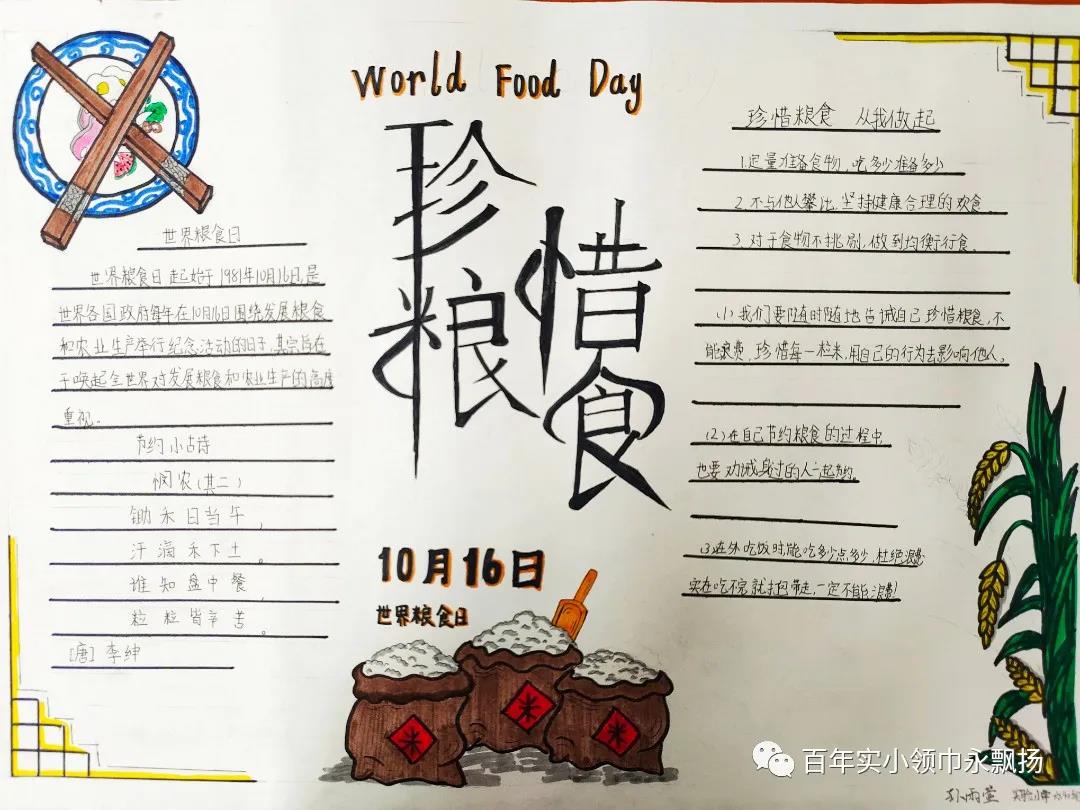 World Food Day
珍惜粮食
世界粮食日
世界粮食日起始于1981年10月16日,是
世界各国政府每年在10月16日围绕发展粮食
和农业生产举行纪念活动的日子,其宗旨在
于唤起全世界对发展粮食和农业生产的高度
重视。
节约小古诗
悯农(其二)
锄禾日当午,
汗滴禾下土。
谁知盘中餐,
粒粒皆辛苦。
[唐] 李绅
10月16日
世界粮食日
米
米
米
珍惜粮食 从我做起
1.定量准备食物,吃多少准备多少
2.不与他人攀比,坚持健康合理的饮食。
3.对于食物不挑剔,做到均衡行食。
(1)我们要随时随地告诫自己珍惜粮食,不
能浪费,珍惜每一粒米,用自己的行为去影响他人。
(2)在自己节约粮食的过程中
也要劝诫身边的人一起节约。
(3)在外吃饭时,能吃多少点多少,杜绝浪费
实在吃不完就打包带走,一定不能浪费!
百年实小领巾永飘扬
孙雨萱